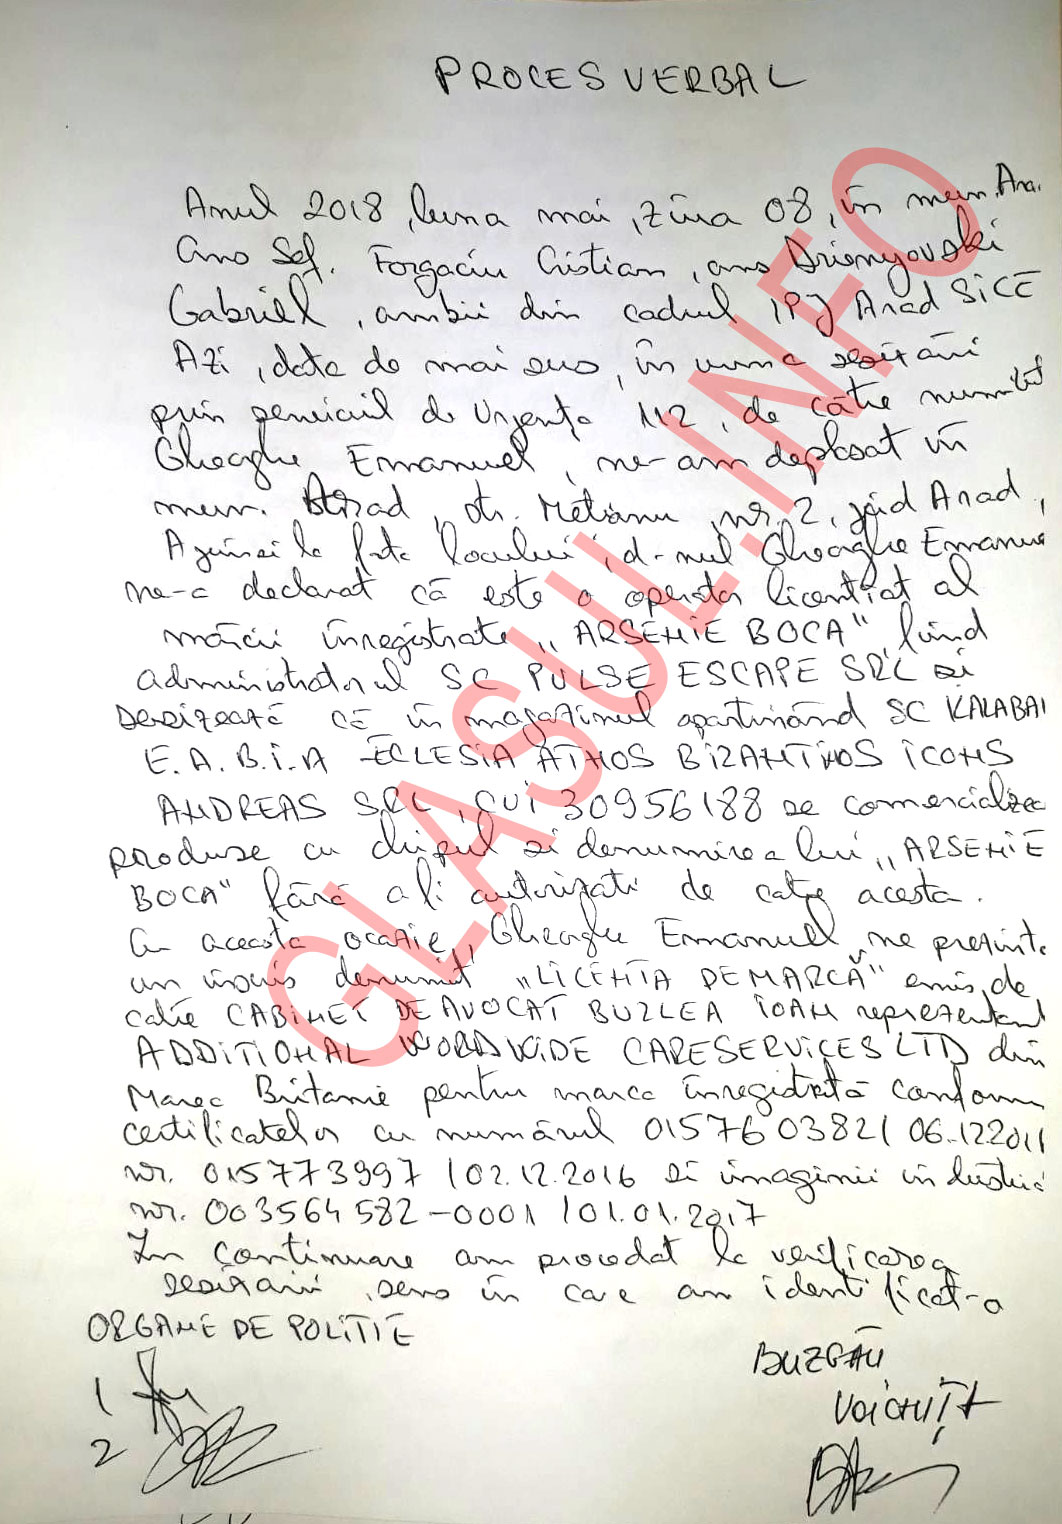 PROCES VERBAL
Anul 2018, luna mai, ziua 08, în mun. Ara
Forgaciu Cristian,
Gabriel, ambii din cadrul IPJ Arad SICE
Azi, data de mai sus, în urma sesizării
prin serviciul de Urgența 112, de către numitul
Gheorghe Emmanuel, ne-am deplasat în
mun. Arad, str. Mețianu, nr. 2, jud Arad,
Ajunsi la fata locului, d-nul Gheorghe Emmanue
ne-a declarat că este o operator licentiat al
mărcii înregistrate „ARSENIE BOCA" fiind
administratorul SC PULSE ESCAPE SRL si
sesizează că în magazinul apartinând SC KALABAI
E.A.B.I.A ECLESIA ATHOS BIZANTINOS ICONS
ANDREAS SRL, CUI 30956188 se comercializea
produse cu chipul si denumirea lui „ARSENIE
BOCA" fără a fi autorizati de catre acesta.
Cu aceasta ocazie, Gheorghe Emmanuel ne prezinta
un înscris denumit „LICENTA DE MARCĂ" emis de
catre CABINET DE AVOCAT BUZLEA IOAN reprezentant
ADDITIONAL WORDWIDE CARESERVICES LTD din
Marea Britanie pentru marca înregistrată conform
certificatelor cu numărul 015760382/ 06.12.2011
nr. 015773997 /02.12.2016 si imaginii industria
nr. 003564582-0001 /01.01.2017
In continuare am procedat la verificarea
sesizarii, sens în care am identificat-o
ORGANE DE POLITIE
BUZGĂU
VOICHIȚA
1
2
GLASUL.INFO